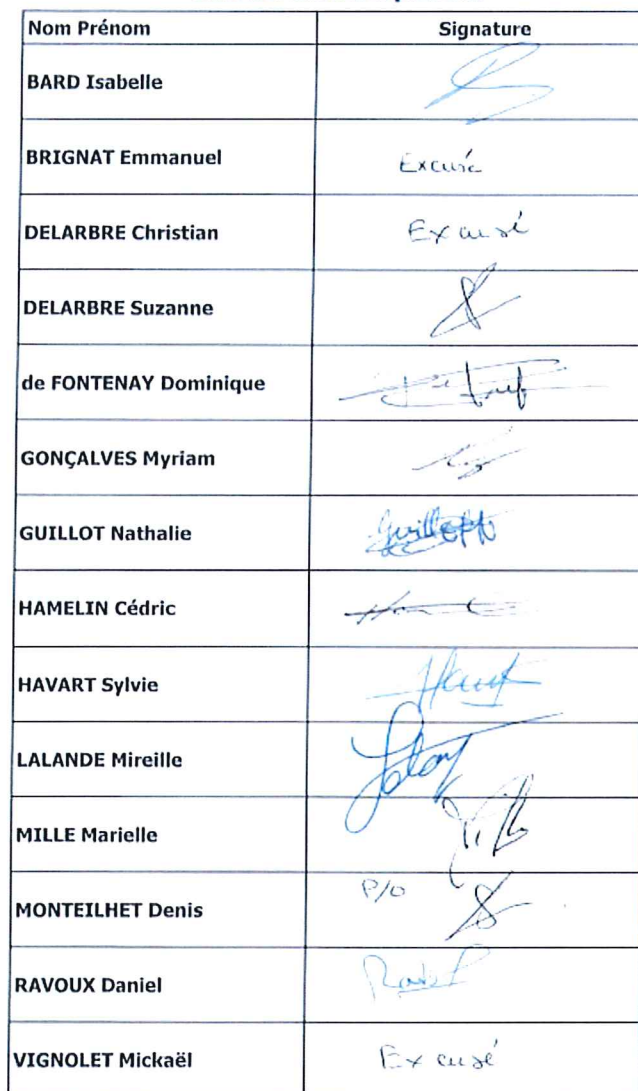 Nom Prénom Signature
BARD Isabelle
BRIGNAT Emmanuel Excusé
DELARBRE Christian Excusé
DELARBRE Suzanne
de FONTENAY Dominique
GONÇALVES Myriam
GUILLOT Nathalie
HAMELIN Cédric
HAVART Sylvie
LALANDE Mireille
MILLE Marielle
MONTEILHET Denis P/O
RAVOUX Daniel
VIGNOLET Mickaël Excusé